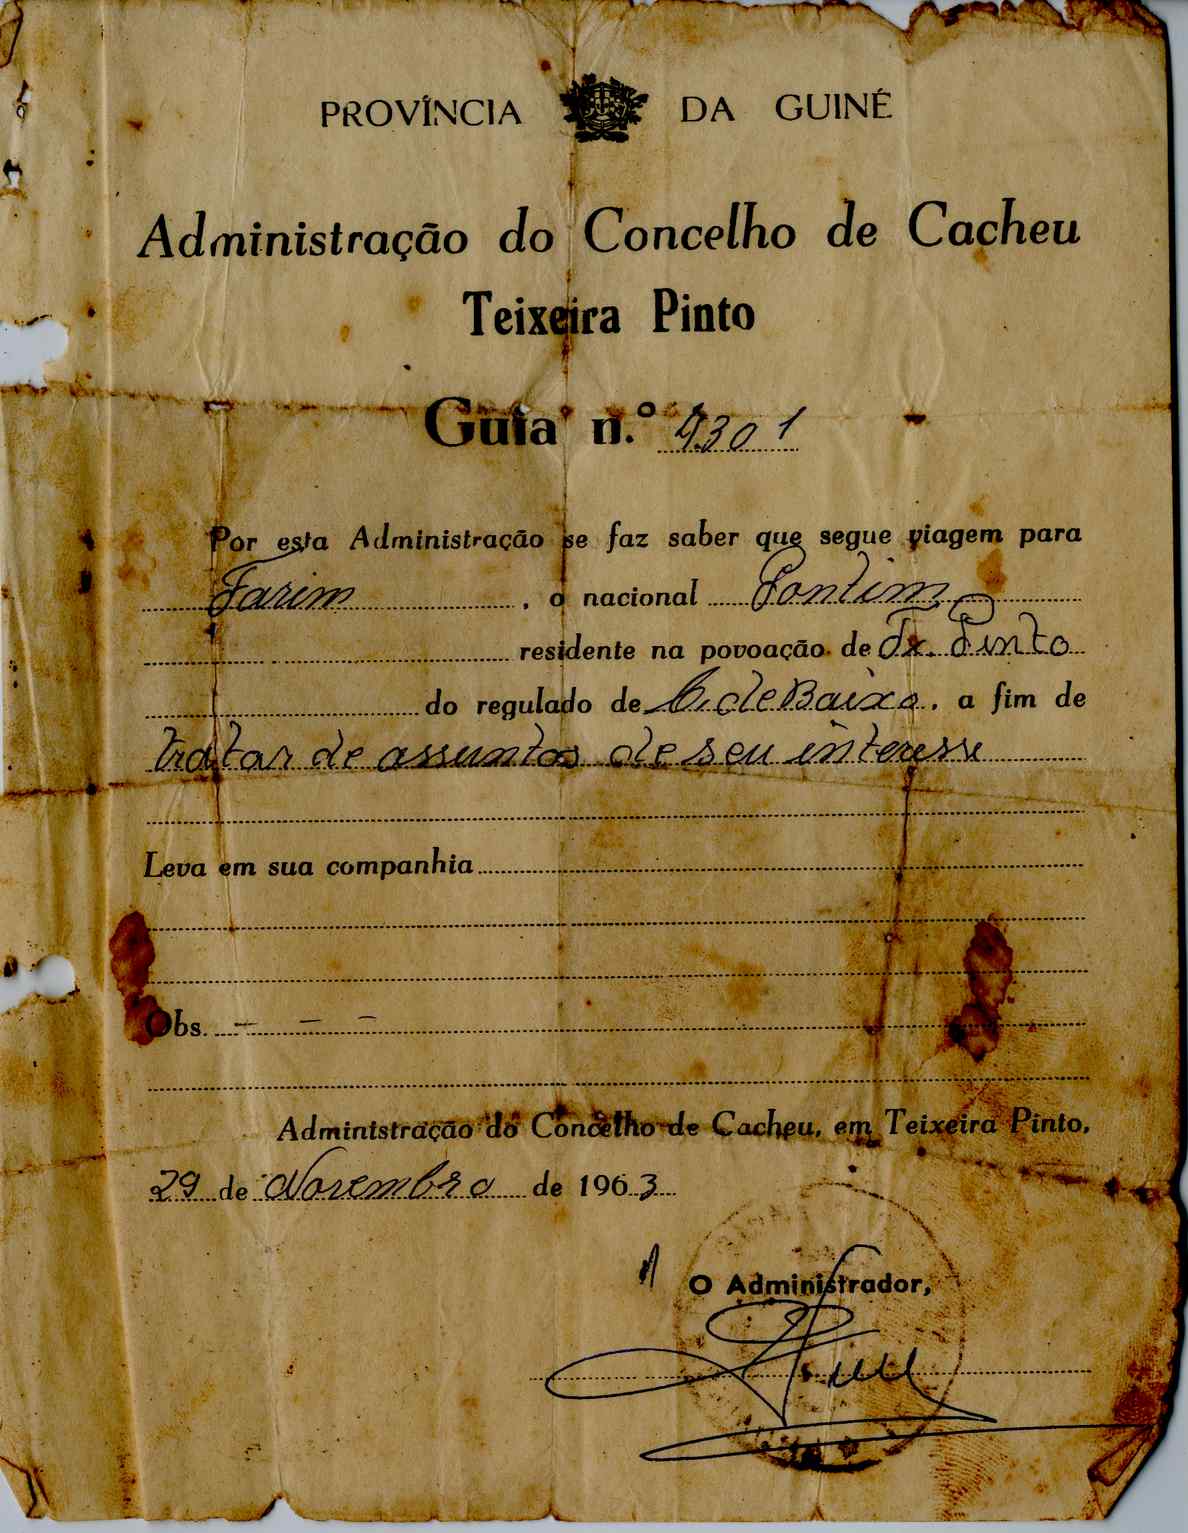 PROVÍNCIA DA GUINÉ
Administração do Concelho de Cacheu
Teixeira Pinto
Guia n.º 4301
Por esta Administração se faz saber que segue viagem para
Farim, o nacional Pontim
residente na povoação de Tx. Pinto
do regulado de C. de Baixo, a fim de
tratar de assuntos de seu interesse
Leva em sua companhia
Obs. — — —
Administração do Concelho de Cacheu, em Teixeira Pinto,
29 de Novembro de 1963
O Administrador,